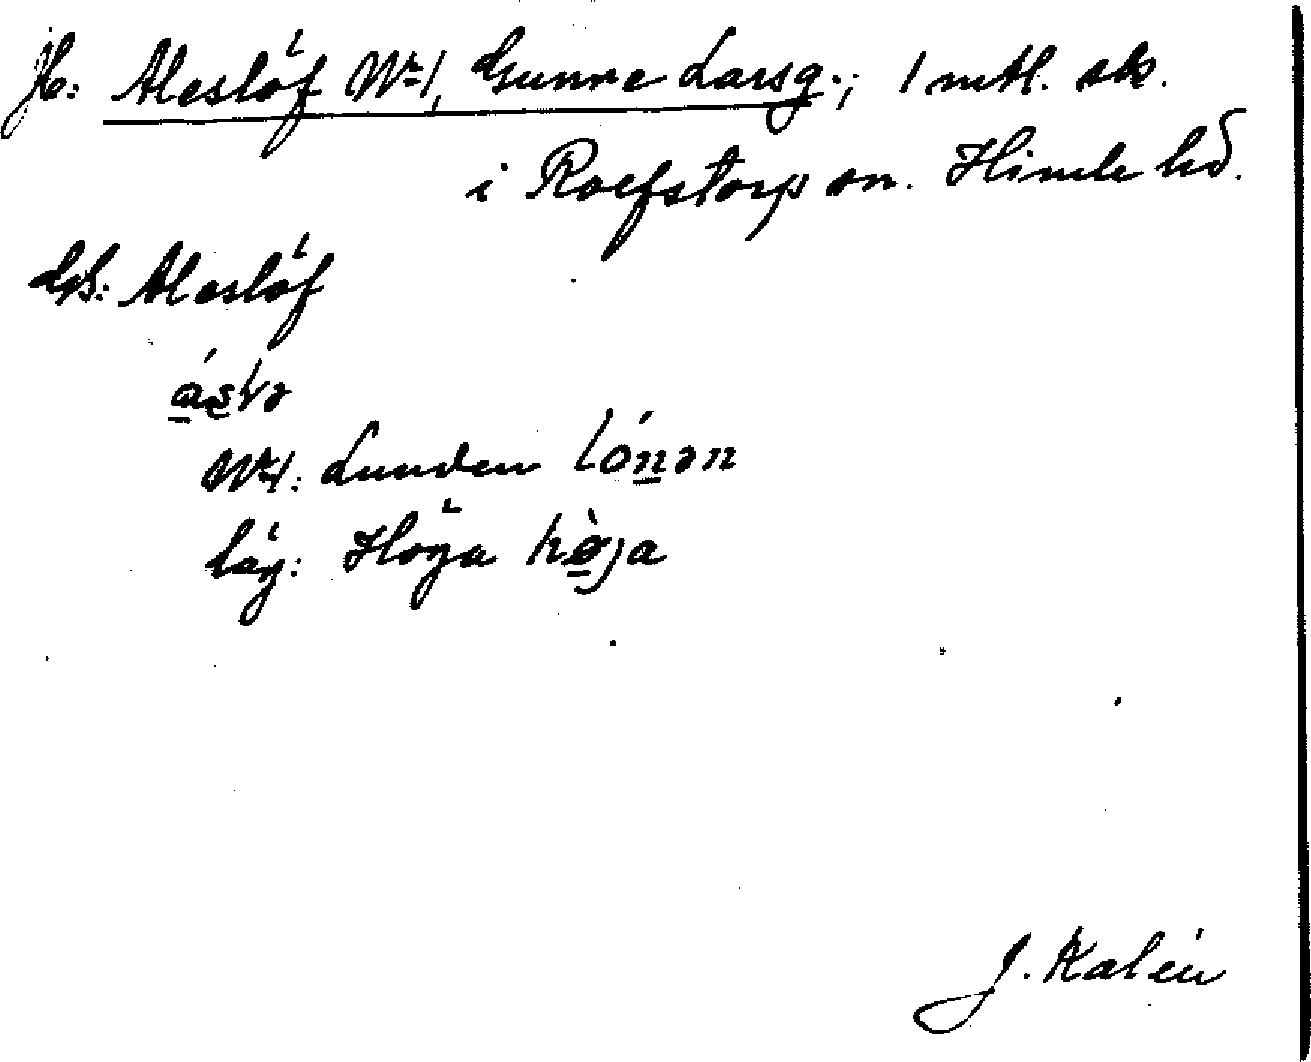 Jb: Aleslöf Nr 1, Gunne Larsg.; 1 mtl. sk.
i Roefstorp sn. Himle hd.
GS: Aleslöf
Nr 1: Lunden lónən
låg: Höga hø̀ja
J. Kalén